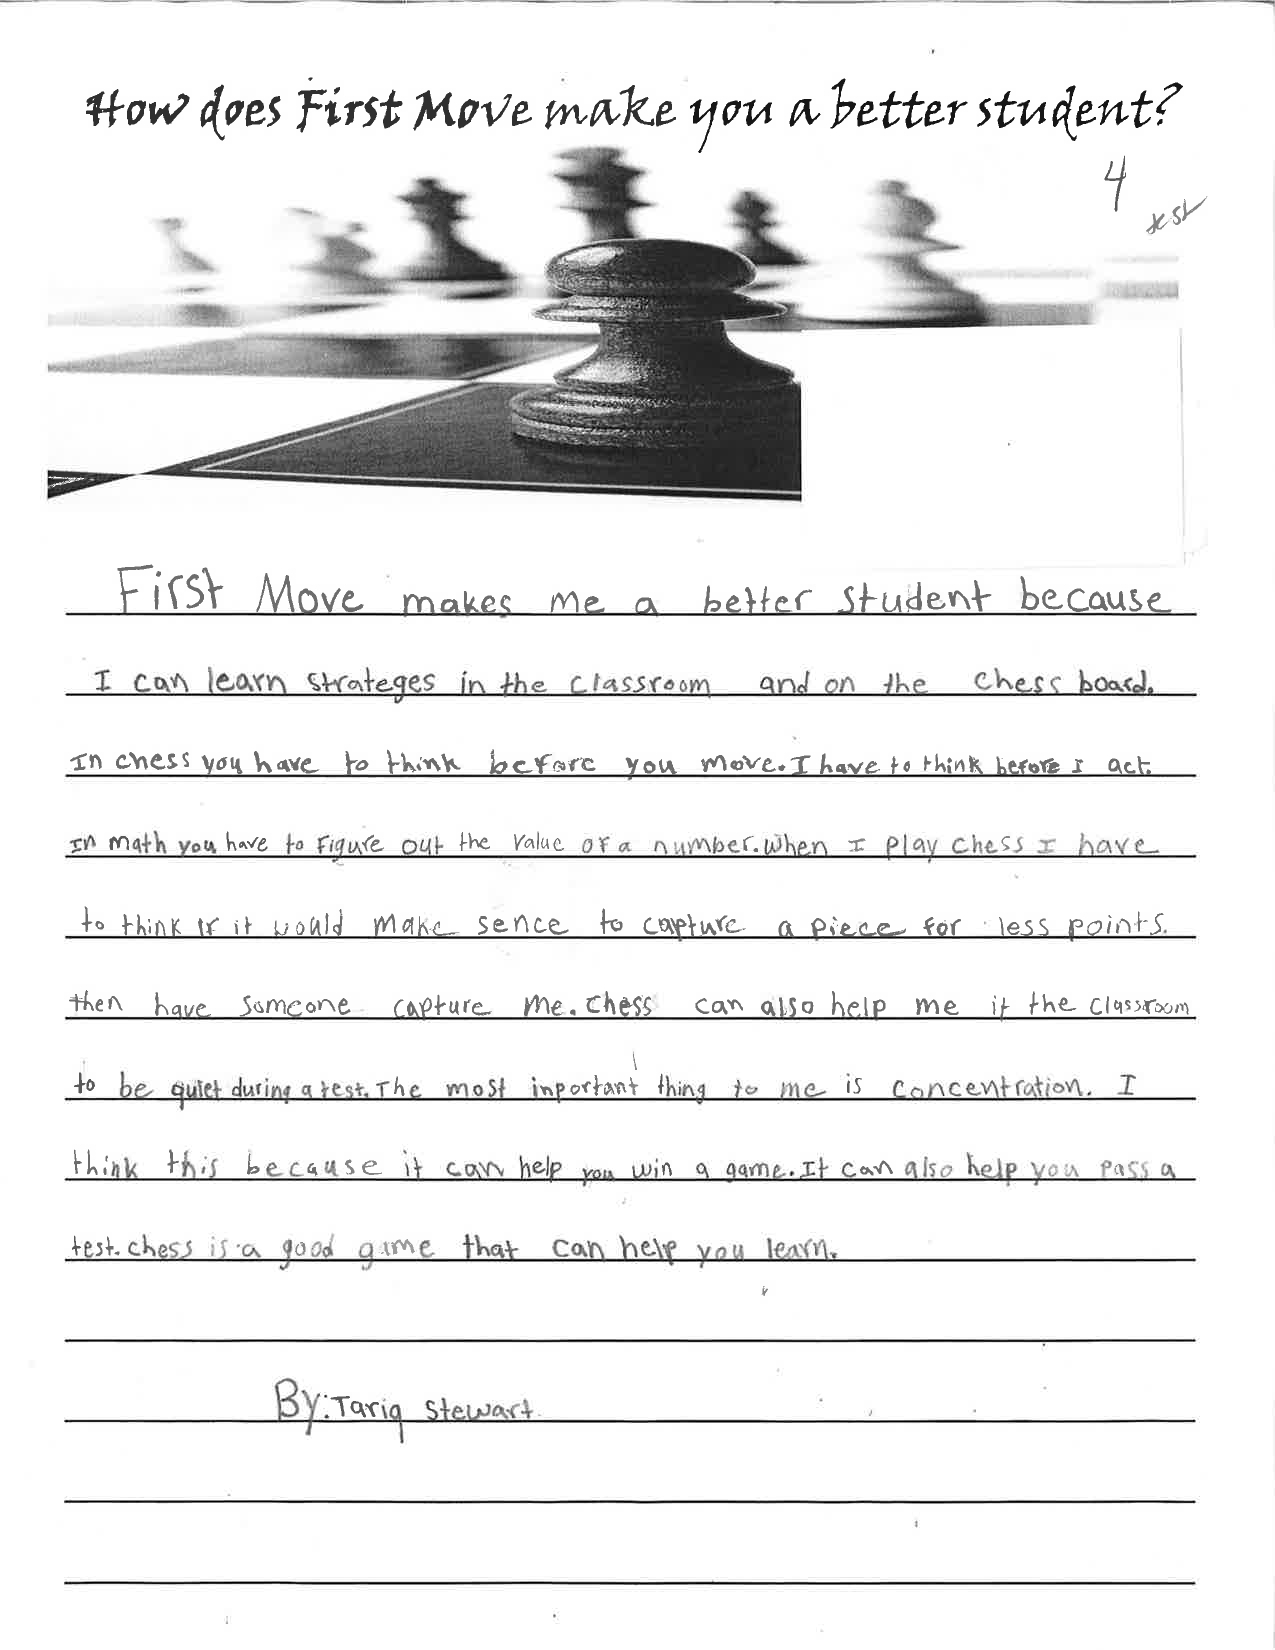 How does First Move make you a better student?
4
First Move makes me a better student because
I can learn strateges in the classroom and on the chess board.
In chess you have to think before you move. I have to think before I act.
In math you have to Figure out the value of a number. When I play chess I have
to think if it would make sence to capture a piece for less points.
then have someone capture me. Chess can also help me if the classroom
to be quiet during a test. The most inportant thing to me is concentration. I
think this because it can help you win a game. It can also help you pass a
test. chess is a good game that can help you learn.
By: Tariq Stewart